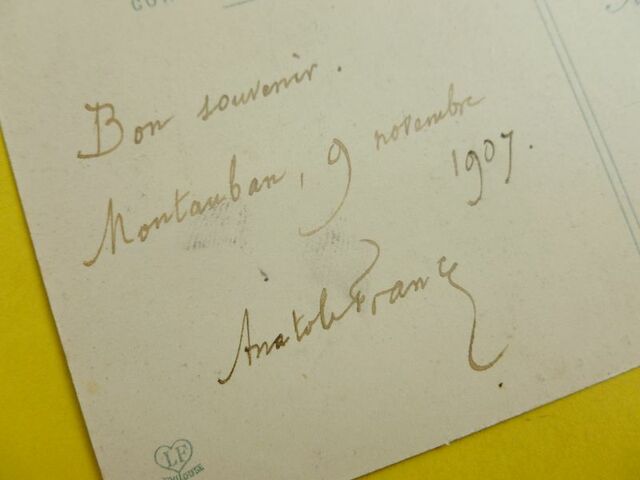 Bon souvenir.
Montauban, 9 novembre
1907.
Anatole France
LF